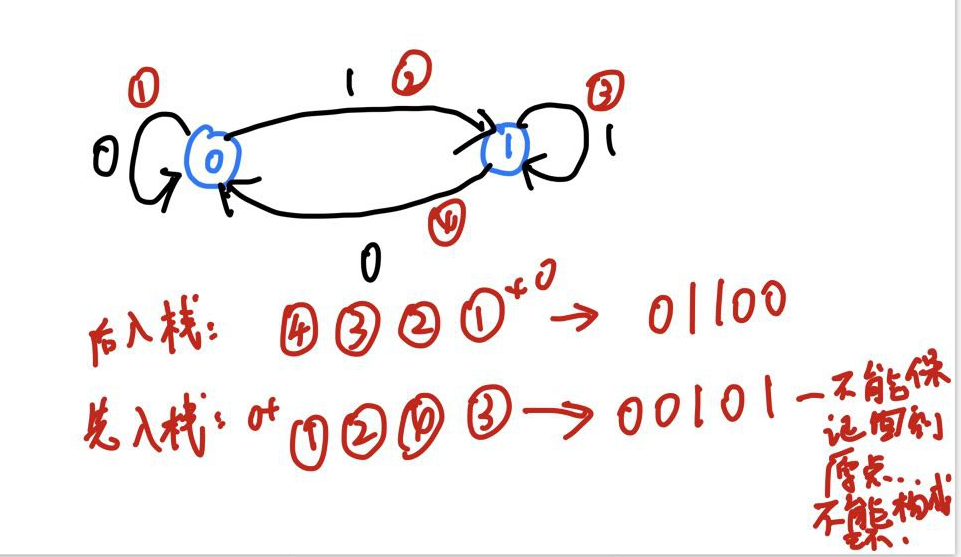 ① 1 ② ③
0 0 1 1
④
0
后入栈: ④ ③ ② ① + 0 → 01100
先入栈: 0+ ① ② ④ ③ → 00101 — 不能保
证回到
原点...
不能构成
环.